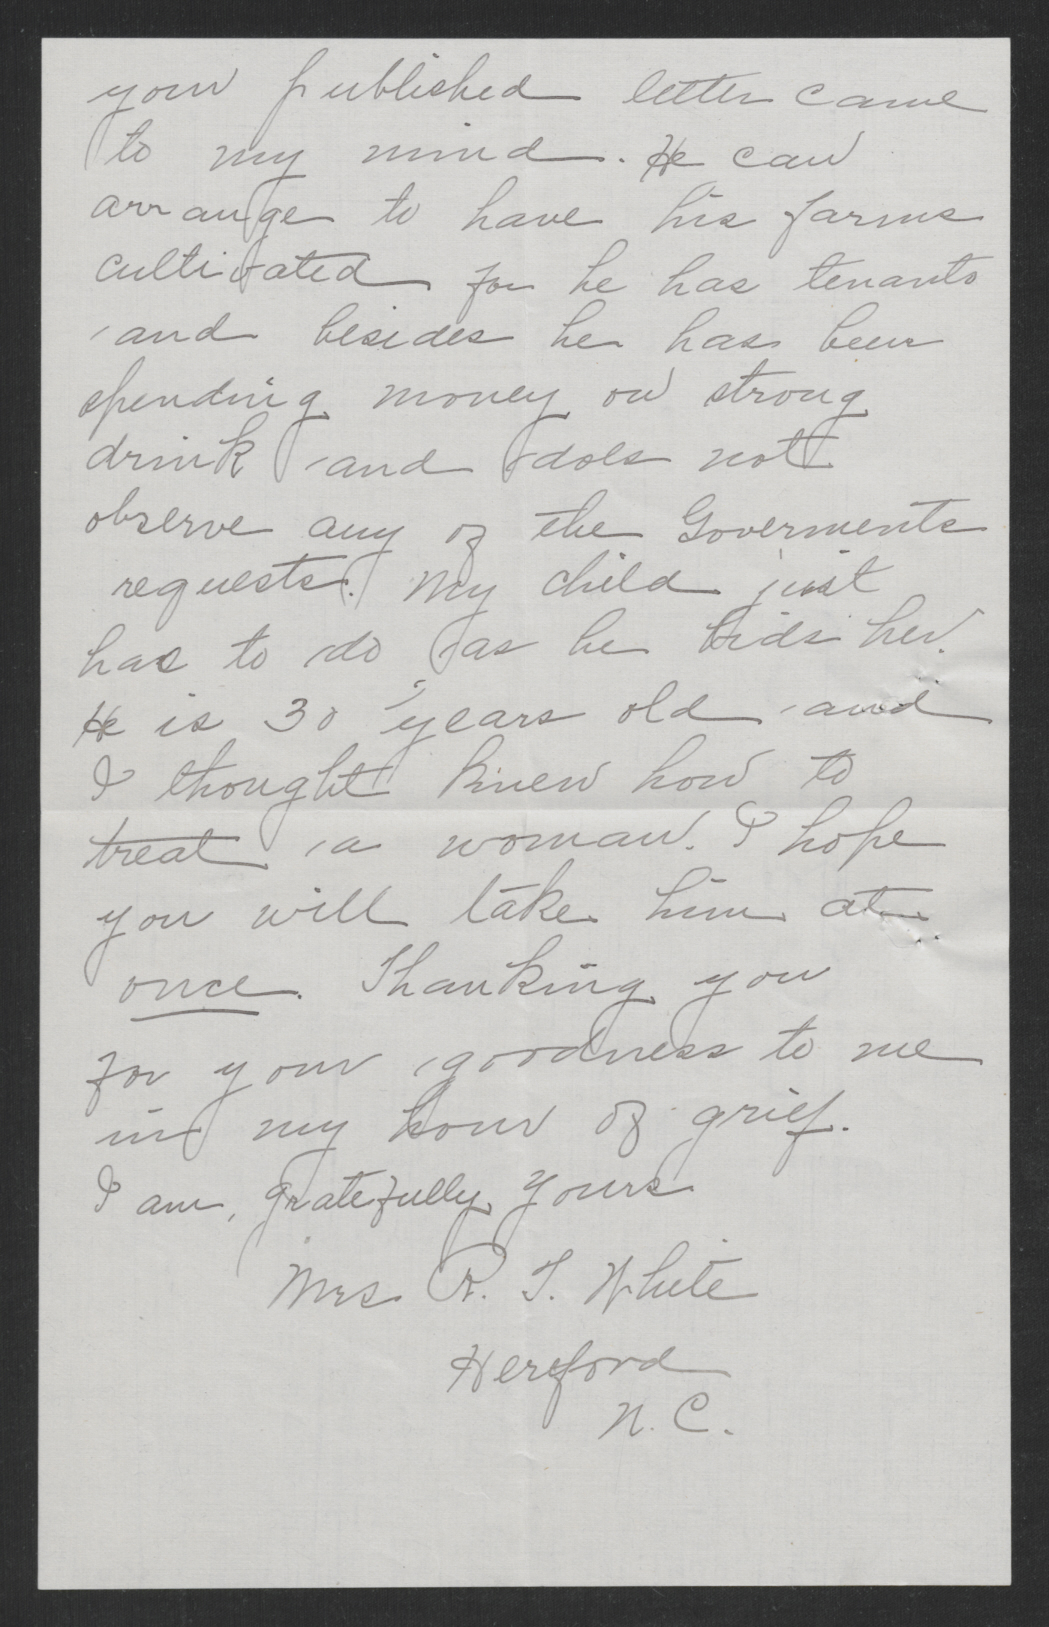 your published letter came
to my mind. He can
arrange to have his farms
cultivated for he has tenants
and besides he has been
spending money on strong
drink and does not
observe any of the Goverments
requests. My child just
has to do as he bids her.
He is 30 years old and
I thought knew how to
treat a woman. I hope
you will take him at
once. Thanking you
for your goodness to me
in my hour of grief.
I am, gratefully yours
Mrs R. T. White
Hereford
N. C.